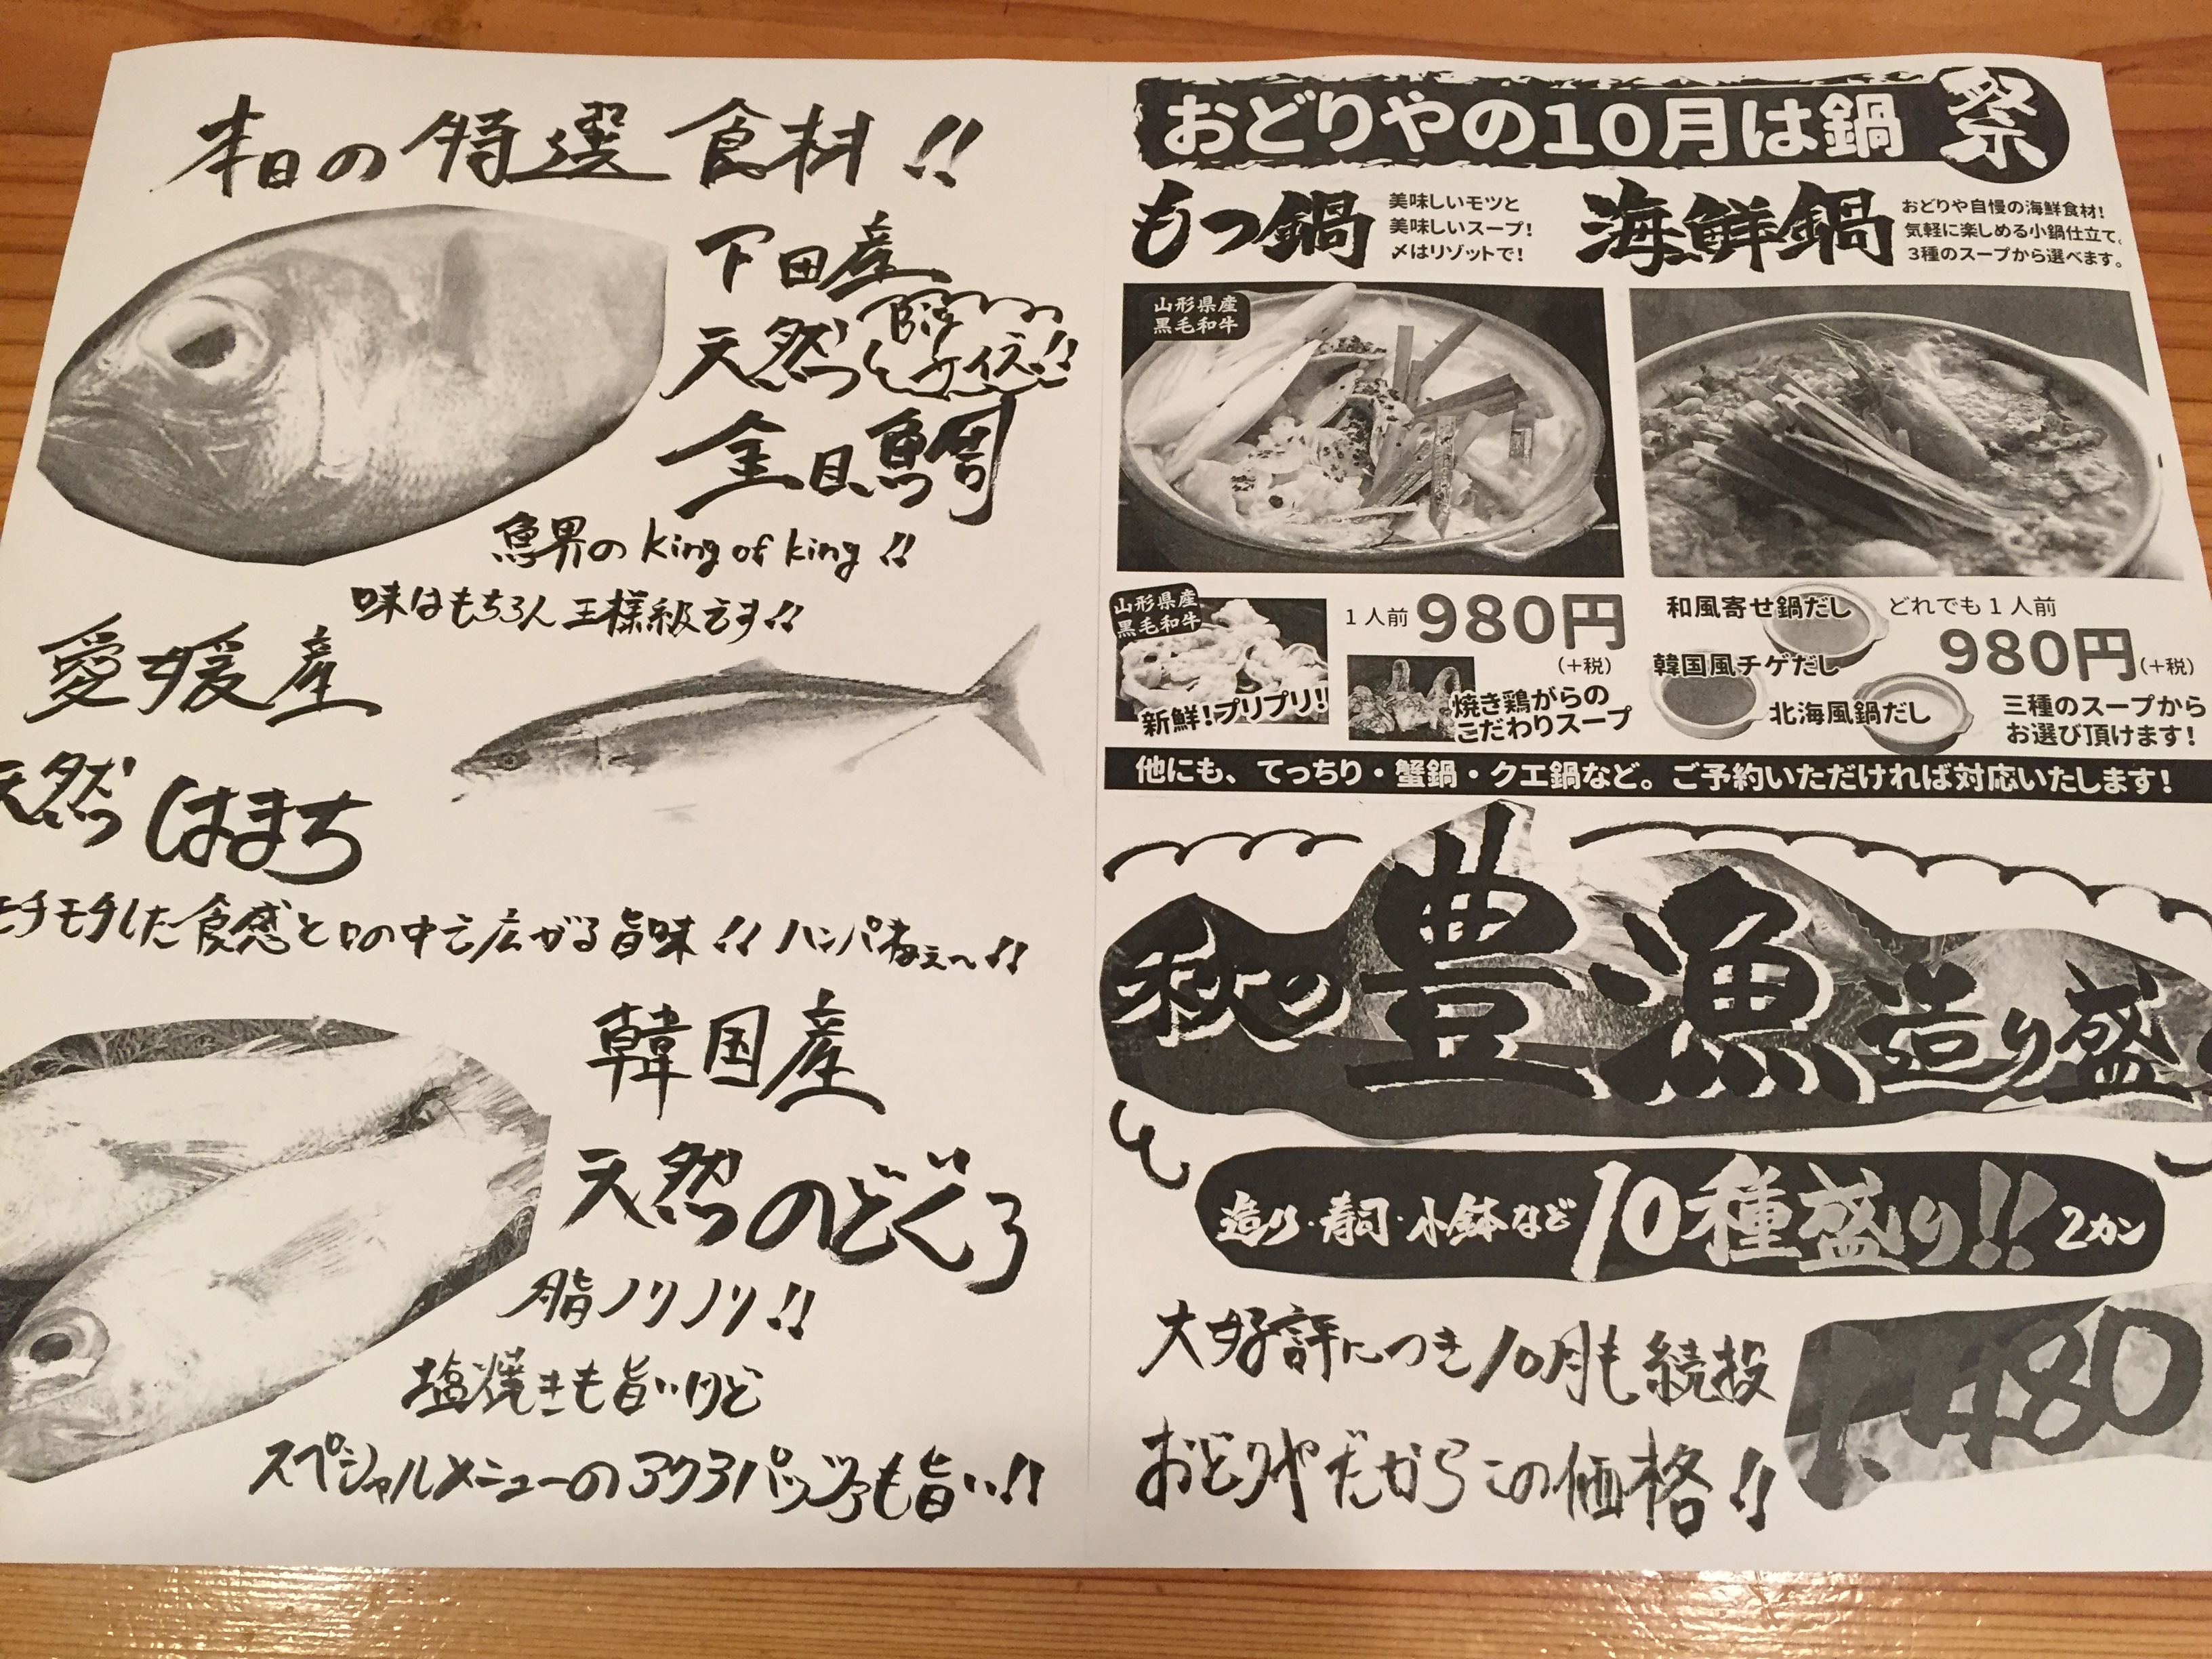 本日の特選食材!!
下田産
天然
Bigサイズ!!
金目鯛
魚界のking of king!!
味はもちろん王様級です!!
愛媛産
天然はまち
モチモチした食感と口の中で広がる旨味!! ハンパねぇ〜!!
韓国産
天然のどぐろ
脂ノリノリ!!
塩焼きも旨いけど
スペシャルメニューのアクアパッツァも旨い!!
おどりやの10月は鍋祭
もつ鍋
美味しいモツと
美味しいスープ!
〆はリゾットで!
山形県産
黒毛和牛
山形県産
黒毛和牛
新鮮!プリプリ!!
1人前 980円
(+税)
焼き鶏がらの
こだわりスープ
海鮮鍋
おどりや自慢の海鮮食材!
気軽に楽しめる小鍋仕立て。
3種のスープから選べます。
和風寄せ鍋だし
韓国風チゲだし
北海風鍋だし
どれでも1人前
980円(+税)
三種のスープから
お選び頂けます!
他にも、てっちり・蟹鍋・クエ鍋など。ご予約いただければ対応いたします!
秋の豊漁造り盛
造り・寿司・小鉢など10種盛り!! 2カン
大好評につき10月も続投
おどりやだからこの価格!!
1,480